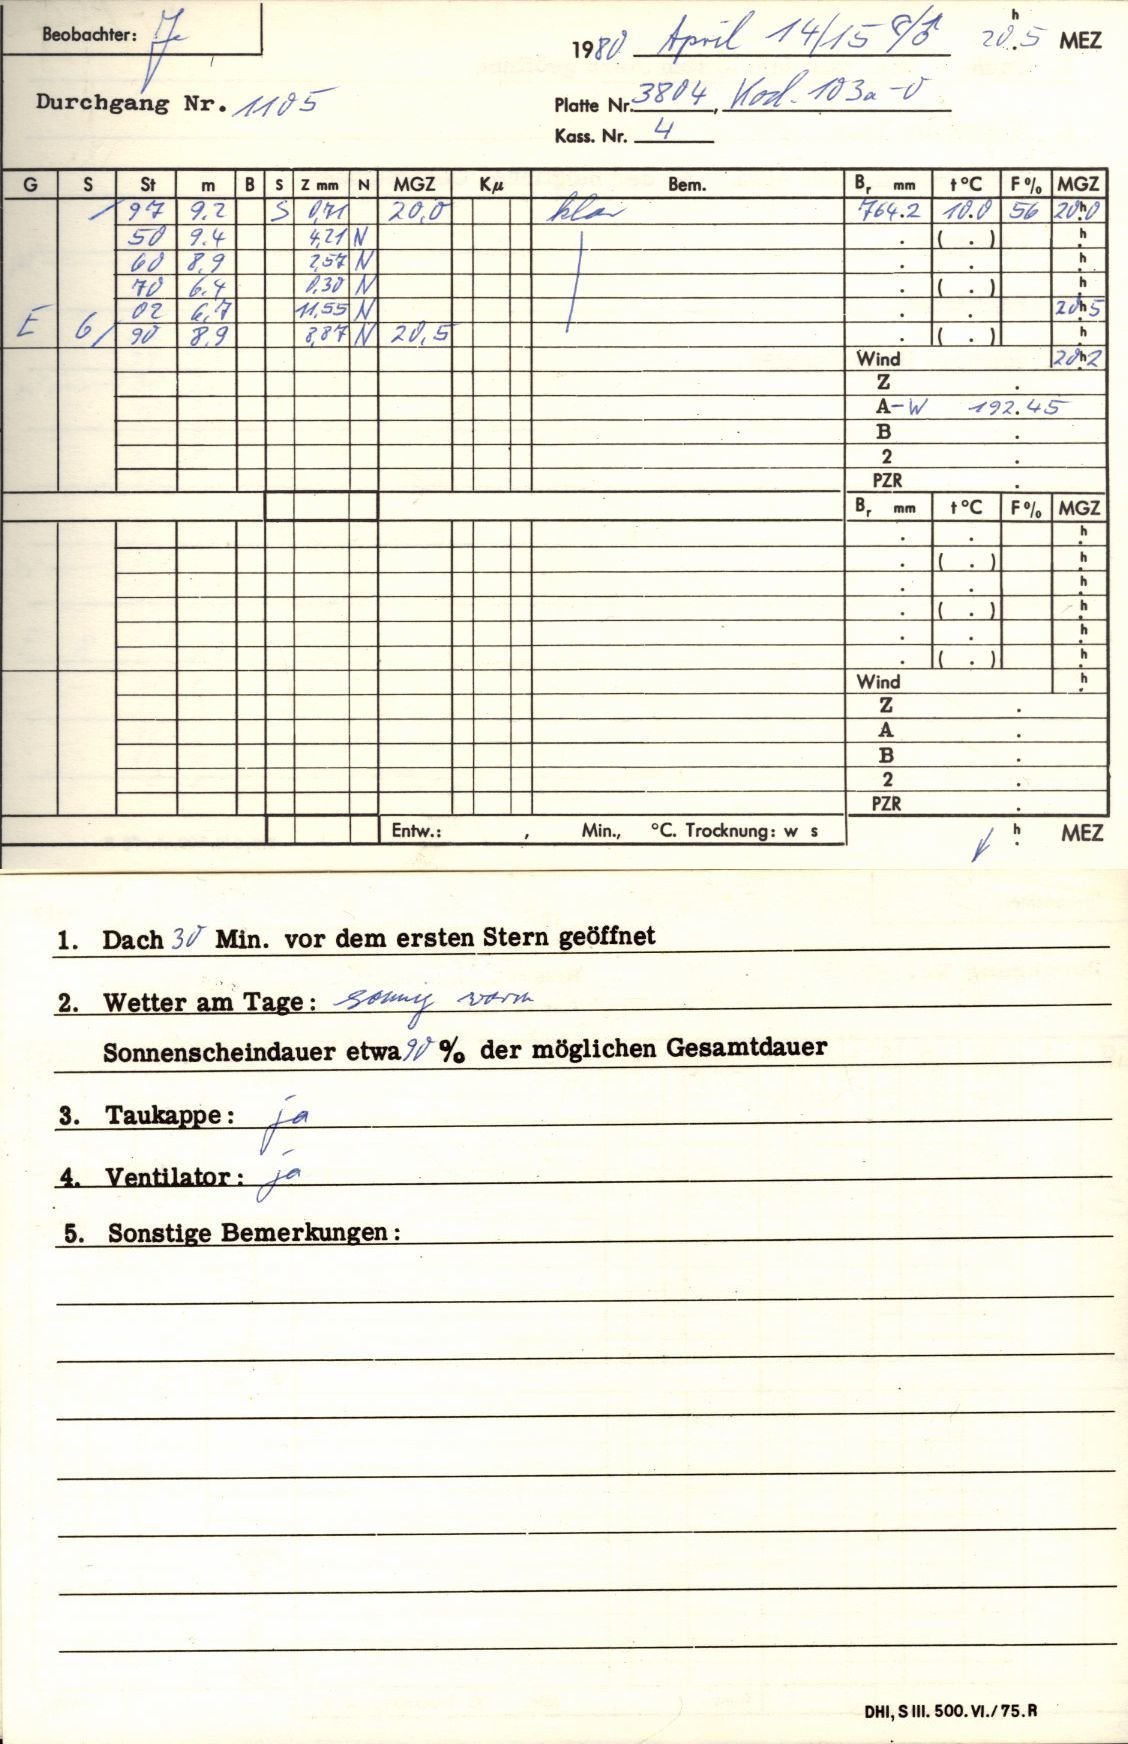 Beobachter: Je
1980 April 14/15 20h.5 MEZ
Durchgang Nr. 1105
Platte Nr. 3804, Kod. 103a-0
Kass. Nr. 4
G S St m B S Z mm N MGZ Kμ Bem. Br mm t °C F% MGZ
/ 97 9.2 S 0,71 20,0 klar 764.2 10.0 56 20h.0
50 9.4 4,21 N . ( . ) h.
60 8,9 2,57 N . . h.
70 6.4 0,30 N . ( . ) h.
02 6,7 11,55 N . . 20h.5
E 6/ 90 8,9 N 20,5 . ( . ) h.
Wind 20h.2
Z .
A-W 192.45
B .
2 .
PZR .
Br mm t °C F% MGZ
. . h.
. ( . ) h.
. . h.
. ( . ) h.
. . h.
. ( . ) h.
Wind h.
Z .
A .
B .
2 .
PZR .
Entw.: , Min., °C. Trocknung: w s h. MEZ
1. Dach 30 Min. vor dem ersten Stern geöffnet
2. Wetter am Tage: sonnig warm
Sonnenscheindauer etwa 90 % der möglichen Gesamtdauer
3. Taukappe: ja
4. Ventilator: ja
5. Sonstige Bemerkungen:
DHI, S III. 500. VI./75. R